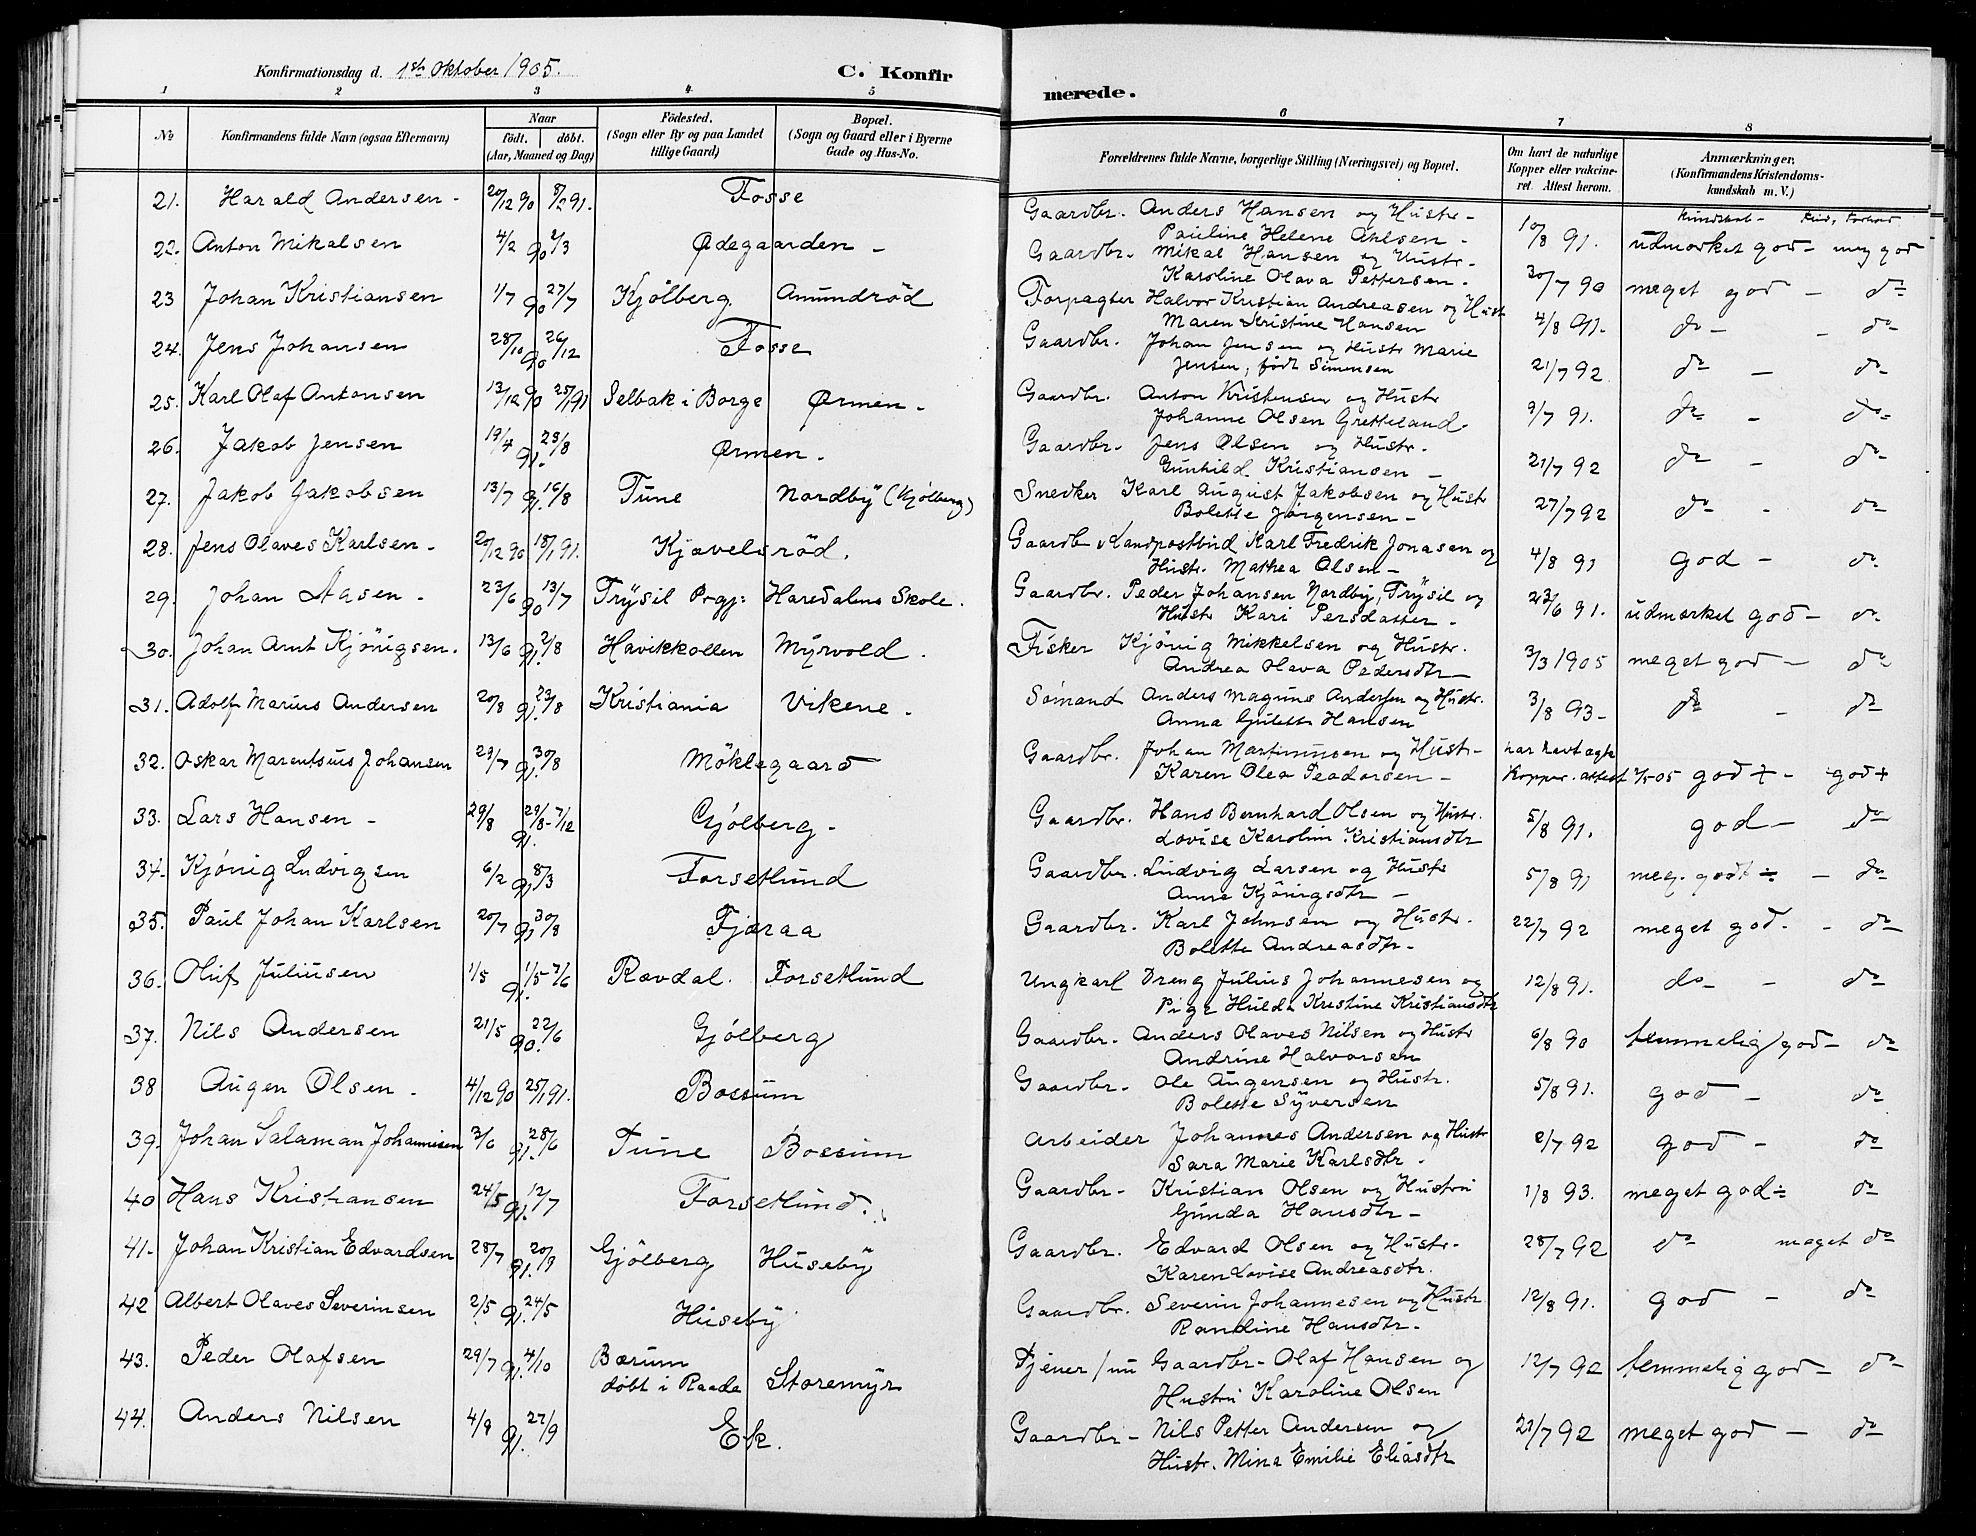 Konfirmationsdag d. 1ste Oktober 1905. C. Konfirmerede.
1 2 3 4 5 6 7 8
No Konfirmandens fulde Navn (ogsaa Efternavn) Naar født. døbt. (Aar, Maaned og Dag) Fødested. (Sogn eller By og paa Landet tillige Gaard) Bopæl. (Sogn og Gaard eller i Byerne Gade og Hus-No. Forældrenes fulde Navne, borgerlige Stilling (Næringsvei) og Bopæl. Om havt de naturlige Kopper eller vakcineret. Attest herom. Anmærkninger. (Konfirmandens Kristendomskundskab m. V.)
Kundskab - Flid, Forhold
21. Harald Andersen - 20/12 90 8/2 91. Fosse Gaardbr. Anders Hansen og Hustr-
Pauline Helene Ahlsen - 10/8 91. udmærket god - meg god
22. Anton Mikalsen 4/2 90 2/3 Ødegaarden - Gaardbr. Mikal Hansen og Hustr-
Karoline Olava Pettersen. 30/7 90 meget god - do
23 Johan Kristiansen 1/7 90 27/7 Kjölberg Amundröd Forpagter Halvor Kristian Andreasen og Hustr
Maren Kristine Hansen 4/8 91. do - - do
24. Jens Johansen 28/10 90 26/12 Fosse Gaardbr. Johan Jensen og Hustr Marie
Jensen, født Simensen 21/7 92 do - do
25. Karl Olaf Antonsen 13/12 90 25/1 91 Selbak i Borge Ørmen - Gaardbr. Anton Kristensen og Hustr
Johanne Olsen Gretteland. 9/7 91. do - do
26. Jakob Jensen 19/4 91. 23/8 Ørmen. Gaardbr. Jens Olsen og Hustr.
Gunhild Kristiansen - 21/7 92 do - do
27. Jakob Jakobsen 13/7 91. 16/8 Tune Nordby (Kjölberg) Snedker Karl August Jakobsen og Hustr
Bolette Jörgensen - 27/7 92 do - do
28. Jens Olaves Karlsen - 20/12 90 18/1 91. Kjævelsröd. Gaardb. Landpostbud Karl Fredrik Jonasen og
Hustr. Mathea Olsen - 4/8 91 god - do
29. Johan Aasen - 23/6 90 13/7 Trysil Prgj: Haredalens Skole. Gaardbr. Peder Johansen Nordby, Trysil og
Hustr Kari Persdatter - 23/6 91. udmærket god - do
30. Johan Arnt Kjönigsen. 13/6 91. 2/8 Havikkollen Myrvold. Fisker Kjönig Mikkelsen og Hustr.
Andrea Olava Pedersdtr 3/3 1905 meget god - do
31. Adolf Marius Andersen 20/8 91. 23/8 Kristiania Vikene. Sömand Anders Magnus Andersen og Hustr.
Anna Gulette Hansen 3/8 93 - do - do
32. Oskar Marentsius Johansen 29/7 91. 30/8 Möklegaard Gaardbr. Johan Martinusen og Hustr-
Karen Olea Peadersen - har havt ægte Kopper. attest 7/5 05 god + - god +
33. Lars Hansen - 29/8 91. 29/8 - 7/12 Gjölberg - Gaardbr. Hans Bernhard Olsen og Hustr.
Lovise Karolin Kristiansdtr 5/8 91. god - do
34. Kjönig Ludvigsen 6/2 91 8/3 Forsetlund Gaardbr. Ludvig Larsen og Hustr
Anne Kjönigsdtr - 5/8 91 meg. godt ÷ - do
35. Paul Johan Karlsen 20/7 91 30/8 Fjæraa Gaardbr. Karl Johnsen og Hustr.
Bolette Andreasdtr. 22/7 92 meget god. - do
36. Oluf Juliusen 1/5 91. 1/5 7/6 Rævdal. Forsetlund Ungkarl Dreng Julius Johannesen og
Pige Hulda Kristine Kristiansdtr 12/8 91. do - do
37. Nils Andersen 21/5 90. 22/6 Gjölberg Gaardbr. Anders Olaves Nilsen og Hustr
Andrine Halvorsen 6/8 90 temmelig god - do
38 Augen Olsen - 4/12 90 25/1 91. Bossum Gaardbr - Ole Augensen og Hustr.
Bolette Syversen 5/8 91. god - do
39. Johan Salaman Johannisen 3/6 91. 28/6 Tune Bossum Arbeider Johannes Andersen og Hustr
Sara Marie Karlsdtr. 2/7 92 god - do
40 Hans Kristiansen 24/5 91. 12/7 Forsetlund. Gaardbr - Kristian Olsen og Hustru
Gunda Hansdtr - 1/8 93. meget god ÷ do
41. Johan Kristian Edvardsen 28/7 91. 20/9 Gjölberg Huseby Gaardbr. Edvard Olsen og Hustr-
Karen Lovise Andreasdtr. 28/7 92 do meget do
42 Albert Olaves Severinsen 2/5 91. 24/5 Huseby Gaardbr. Severin Johannesen og Hustr
Randine Hansdtr. 12/8 91. god - do
43. Peder Olafsen 29/7 91. 4/10 Bærum døbt i Raade Storemyr Tjener / nu Gaardbr - Olaf Hansen og
Hustru Karoline Olsen 12/7 92 temmelig god - do
44. Anders Nilsen 4/9 91. 27/9 Ek. Gaardbr - Nils Petter Andersen og
Hustr. Mina Emilie Eliasdtr 21/7 92 meget god - do